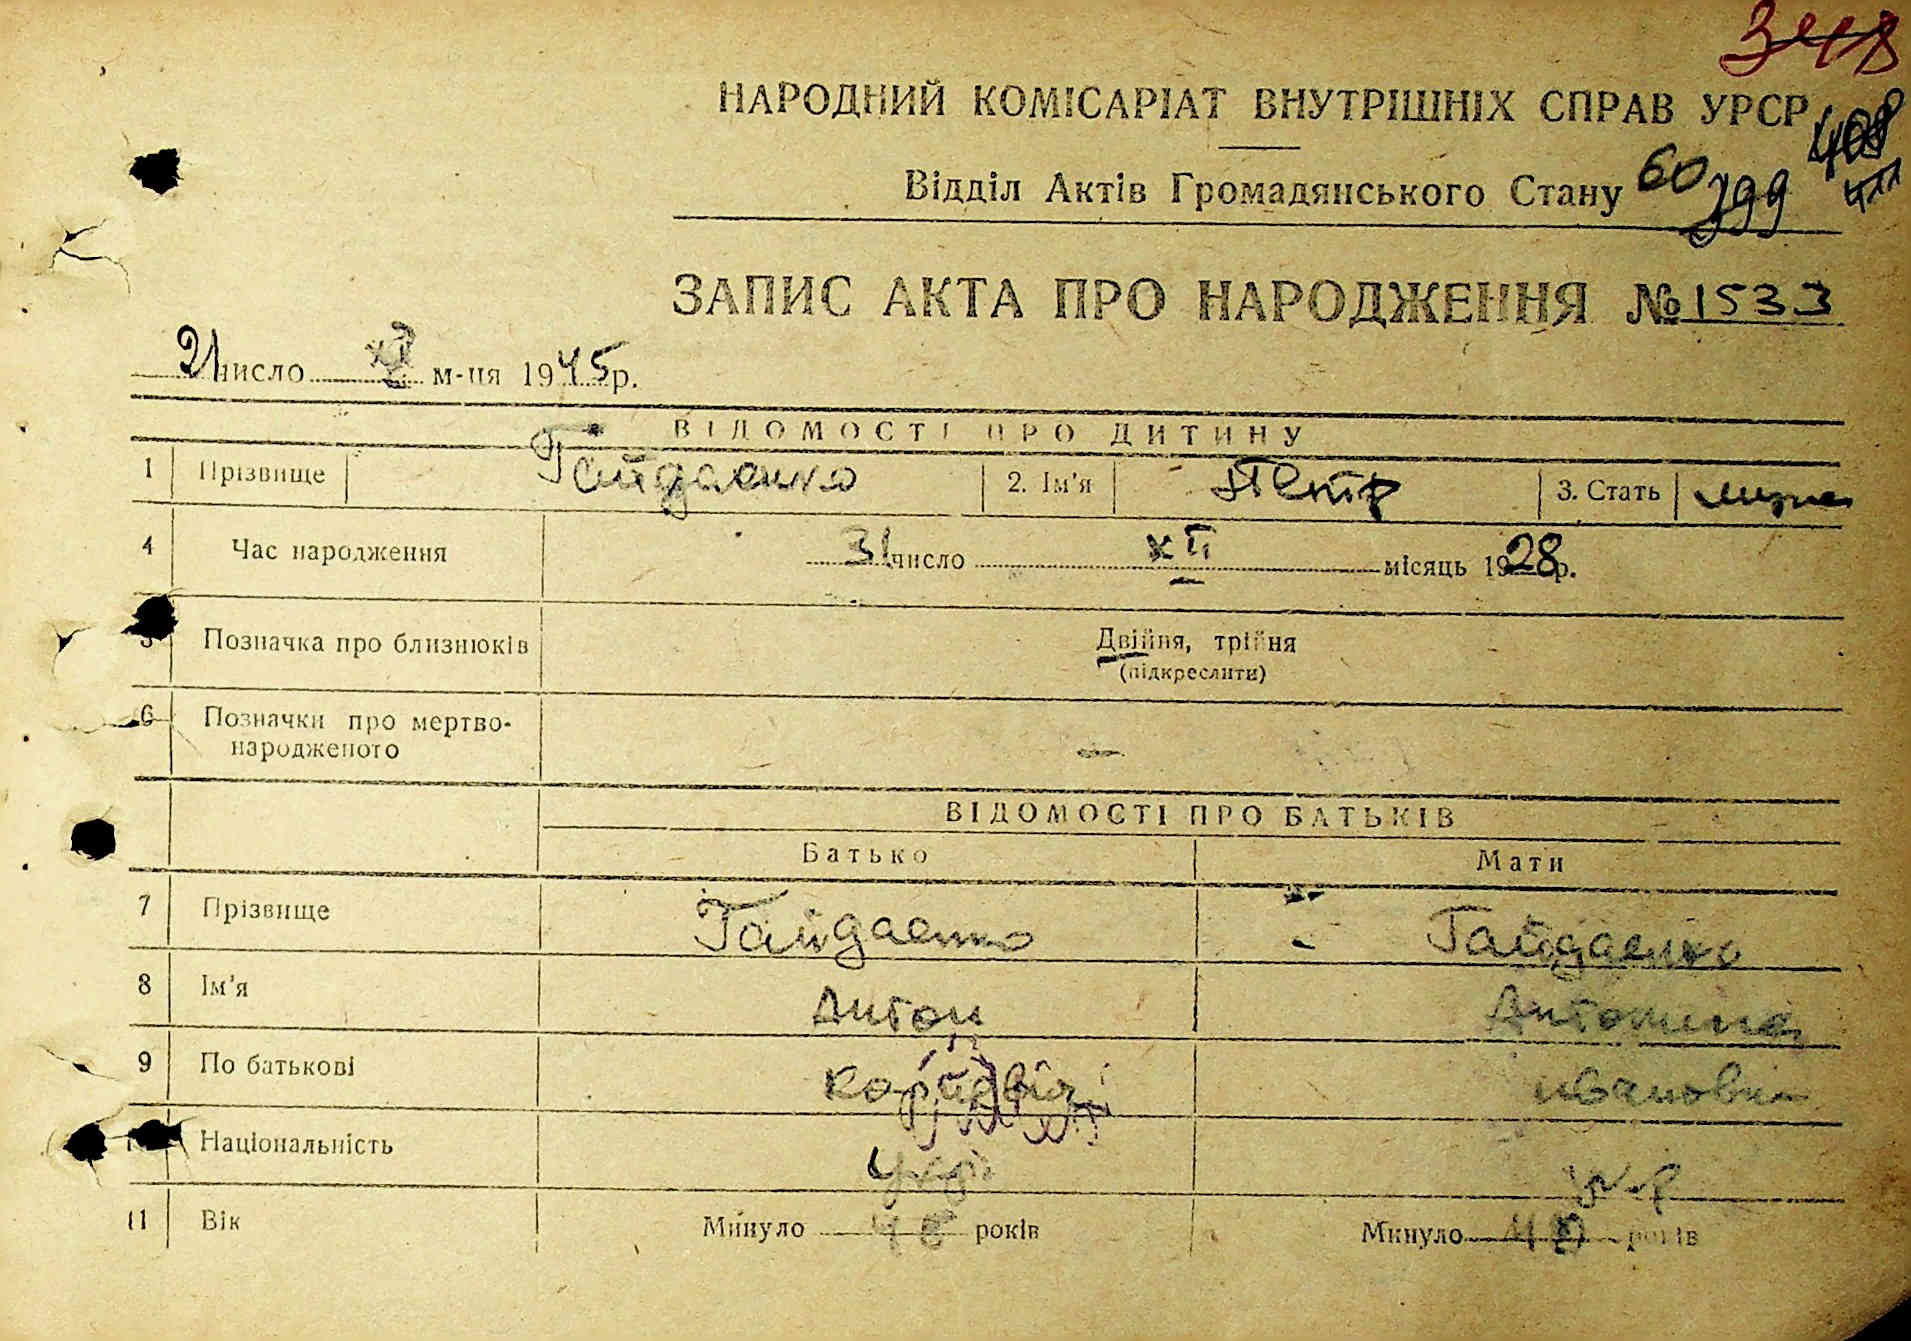 348
НАРОДНИЙ КОМІСАРІАТ ВНУТРІШНІХ СПРАВ УРСР
408
Відділ Актів Громадянського Стану 60 199
ЗАПИС АКТА ПРО НАРОДЖЕННЯ № 1533
21 число XII м-ця 1945 р.
ВІДОМОСТІ ПРО ДИТИНУ
1 Прізвище Гайдаенко 2. Ім'я Петр 3. Стать
4 Час народження 31 число XII місяць 1928 р.
5 Позначка про близнюків Двійня, трійня
(підкреслити)
6 Позначки про мертво-
народженого —
ВІДОМОСТІ ПРО БАТЬКІВ
Батько Мати
7 Прізвище Гайдаенко Гайдаенко
8 Ім'я Антон Антонина
9 По батькові
10 Національність Укр Укр
11 Вік Минуло років Минуло років